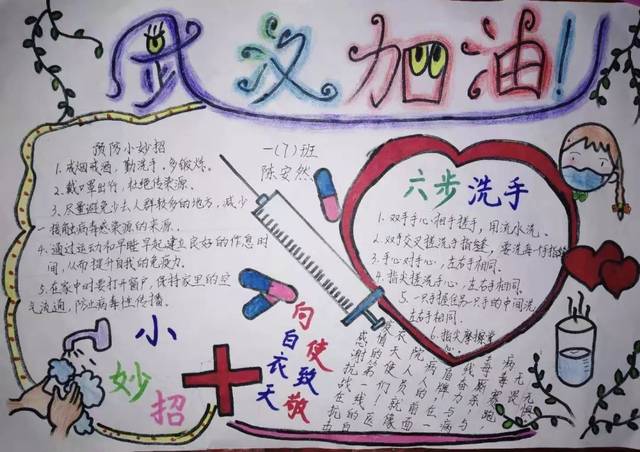 武汉加油!
预防小妙招
1、戒烟戒酒,勤洗手,多锻炼。
2、戴口罩出行,杜绝传染源。
3、尽量避免少去人群较多的地方,减少
接触病毒感染源的来源。
4、通过运动和早睡早起建立良好的作息时
间,从而提升自我的免疫力。
5、在家中时要打开窗户,保持家里的空
气流通,防止病毒性传播。
小妙招
一(7)班
陈安然
六步洗手
1、双手手心相手搓手,用流水洗。
2、双手交叉搓洗手指缝,要洗每一手指缝
3、手心对手心,左右手相同。
4、指尖搓洗手心,左右手相同。
5、一只手握住另一只手的中间洗,
左右手相同。
6、指尖摩擦掌
心。
向白衣天
使致敬